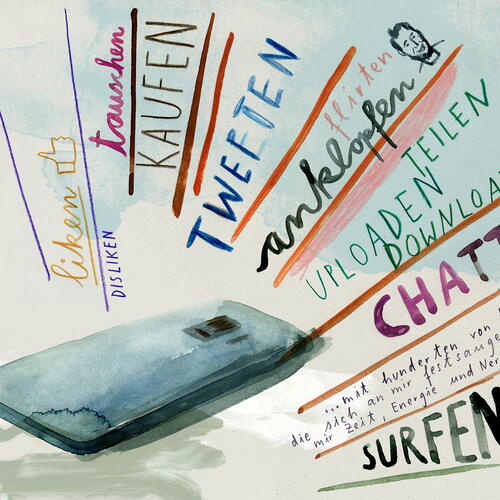 liken
DISLIKEN
tauschen
KAUFEN
TWEETEN
flirten
anklopfen
TEILEN
UPLOADEN
DOWNLOA
CHATT
...mit hunderten von
die sich an mir festsauge
mir Zeit, Energie und Ner
SURFEN